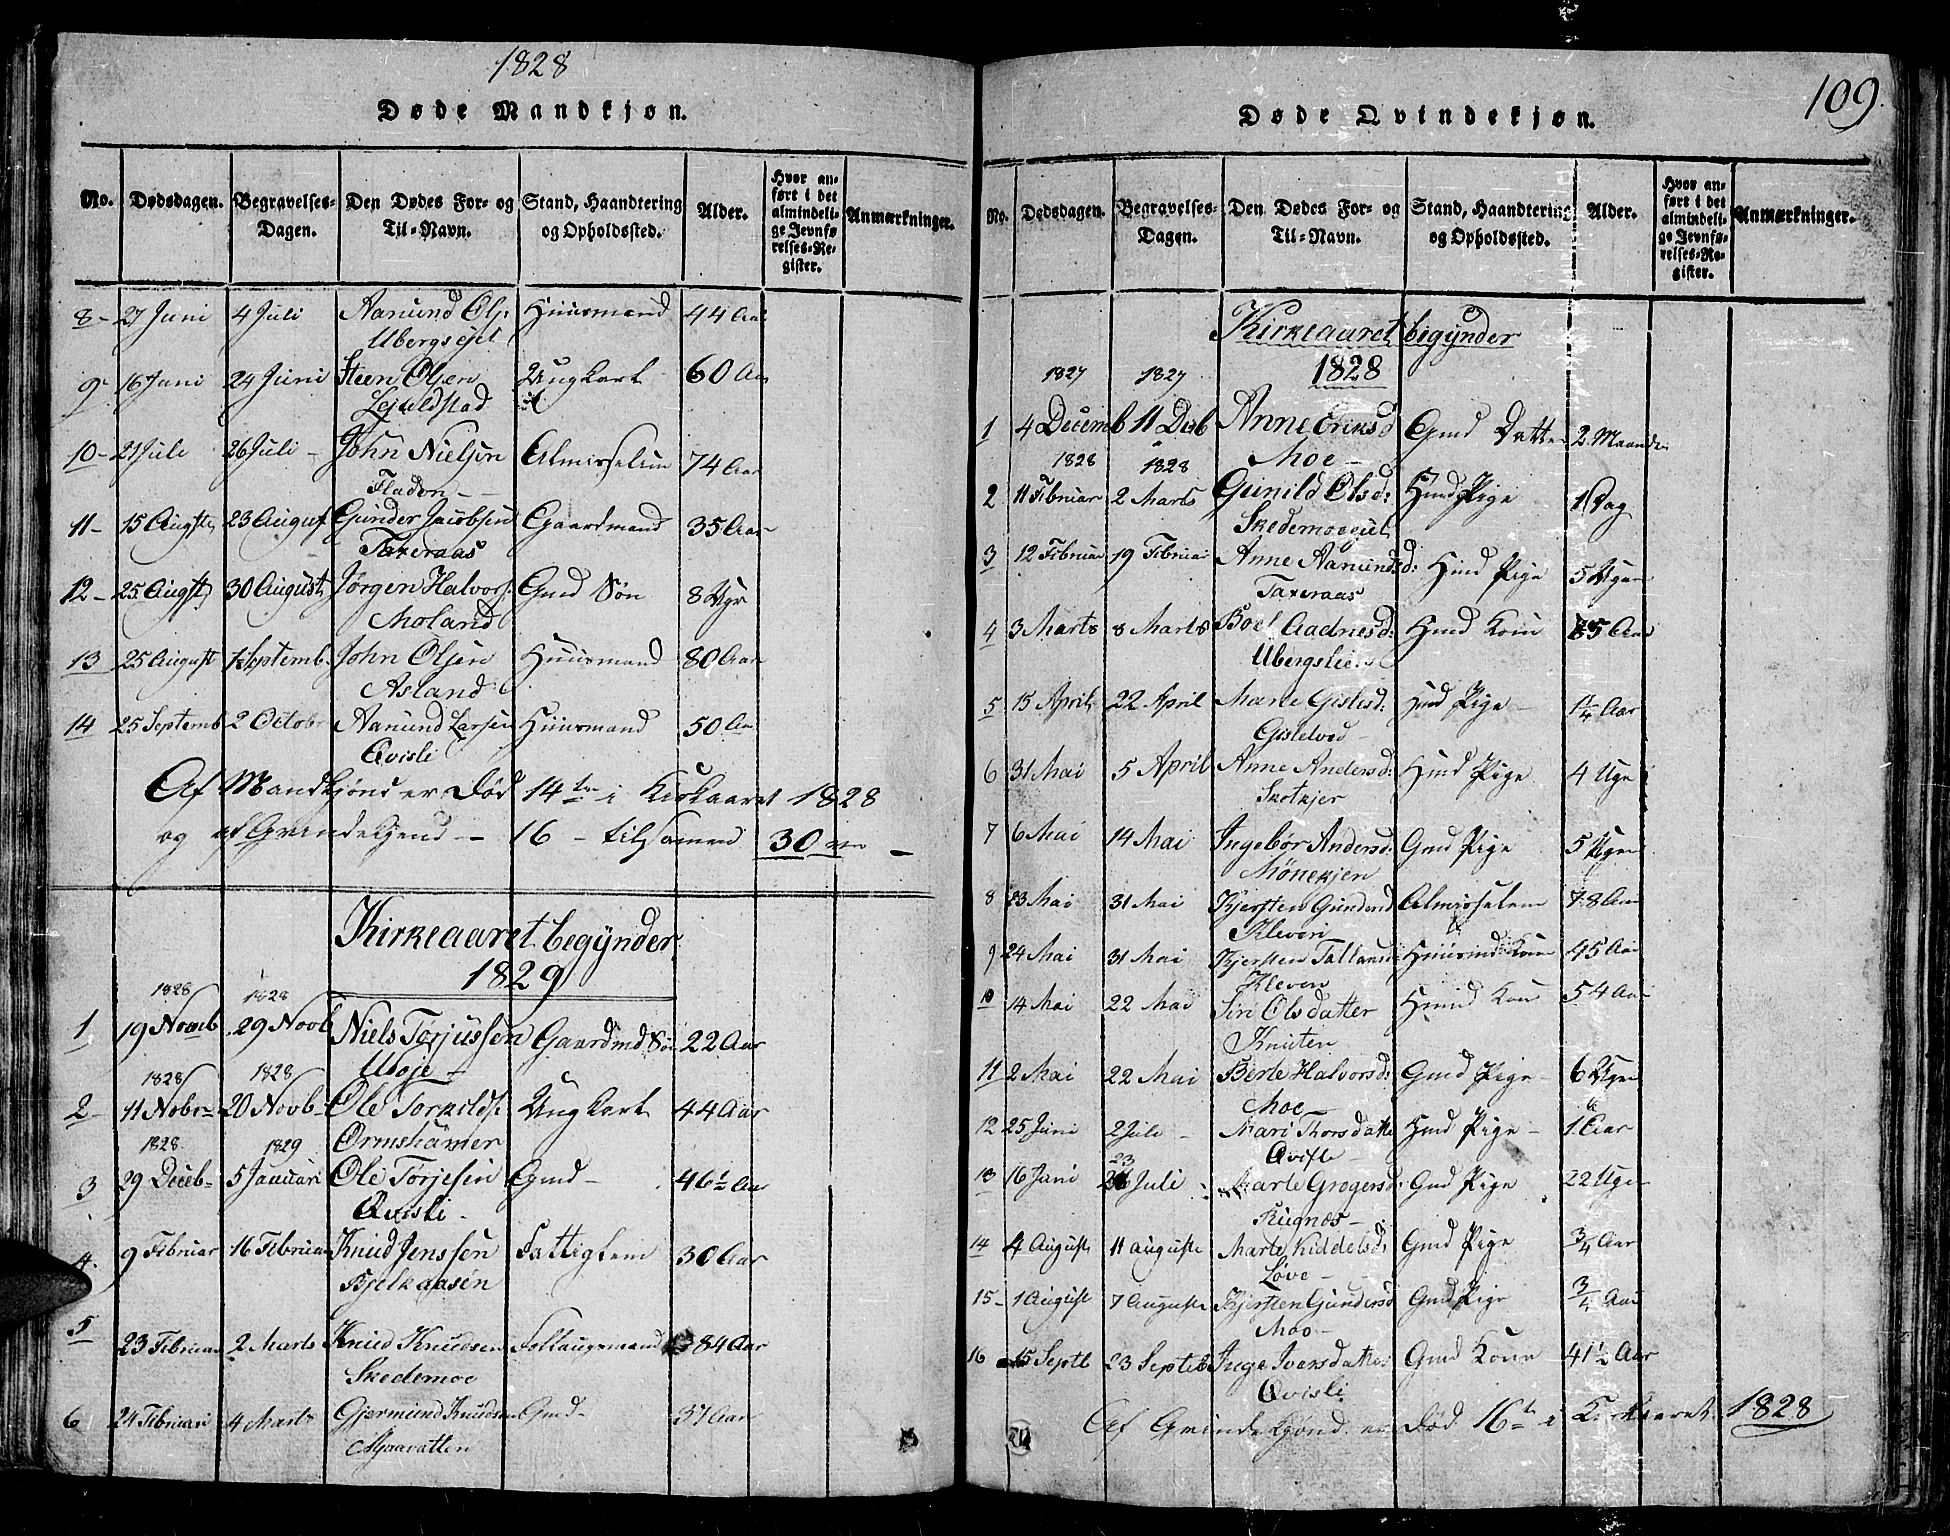 1828
Døde Mandkjøn.
No. Dødsdagen. Begravelses-Dagen. Den Dødes For- og Til-Navn. Stand, Haandtering og Opholdssted. Alder. Hvor anført i det almindelige Jevnførelses-Register. Anmærkninger.
8- 27 Juni 4 Juli Aanund Ols: Huusmand 44 Aar
9- 16 Juni 24 Juni Steen Olsen Ungkarl 60 Aar
Lejuldstad
10- 21 Juli 26 Juli - John Nielsen Almisselem 74 Aar
Fladen -
11- 15 Augst 23 August Gunder Jacobsen Gaardmand 35 Aar
Taxeraas
12- 25 Augst 30 August Jørgen Halvors: Gmd Søn 8 Uger
Moland
13 25 August 1 Septemb. John Olsen Huusmand 80 Aar
Asland
14 25 Septemb 2 Octobr Aanund Larsen Huusmand 50 Aar
Qvisli
Af Mandkjønd er Død 14ten i Kirkaaret 1828
og af Qvindekjend - 16 - tilsamen 30 -
Kirkeaaret begynder
1829
1828 1828
1 19 Novmb 29 Novb Niels Torjussen Gaardmd Søn 22 Aar
Udøje -
1828 1828
2- 11 Nobr 20 Novb- Ole Torkilds: Ungkarl 44 Aar
Ormshamer
1828 1829
3 29 Deceb- 5 Januari Ole Torjesen Gmd- 46½ Aar
Qvisli -
4. 9 Februar 16 Februar Knud Jenssen Fattiglem 30 Aar
Bjelkaasen
5 23 Februar 2 Marts Knud Knudsen Follaugsmand 84 Aar
Skedemoe
6 24 Februari 4 Marts Gjermund Knudsen Gmd- 37 Aar
Myravatten
109.
Døde Qvindekjøn.
No. Dødsdagen. Begravelses-Dagen. Den Dødes For- og Til-Navn. Stand, Haandtering og Opholdssted. Alder. Hvor anført i det almindelige Jevnførelses-Register. Anmærkninger.
Kirkeaaret begynder
1827 1827 1828
1 4 Decemb 11 Decb Anne Eriksd Gmd Datter 2 Maander
Moe -
1828 1828
2 11 Februar 2 Marts Gunild Olsd: Hmd Pige 1 Dag
3 12 Februar 19 Februar Anne Aanundsd: Hmd Pige 5 Uger
Taxeraas
4 3 Marts 8 Marts Boel Aadnesd: Hmd Kone 85 Aar
Ubergslien
5 15 April 22 April Marte Gislesd: Hmd Pige - 1¼ Aar
Gislevod -
6 31 Mai 5 April Anne Andersd: Hmd Pige 4 Uger
Skotkjer
7 6 Mai 14 Mai Ingebør Andersd: Gmd Pige 5 Uger
Mønekjen
8 23 Mai 31 Mai Kjersten Gundersd Almisselem 78 Aar
Kleven
9 24 Mai 31 Mai Kjersten Tallansd: Huusmd: Kone 45 Aar
Kleven
10 14 Mai 22 Mai Siri Olsdatter Hmd Kone 54 Aar
Knuten
11 2 Mai 22 Mai Berte Halvorsd: Gmd Pige - 6 Uger
Moe
12 25 Juni 2 Juli - Mari Thorsdatte Hmd Pige - 1 Aar
Qvisle -
13 16 Juni 23 Juli Marte Grogersd: Gmd Pige 22 Uger
Rugnæs -
14 4 August 11 auguste Marte Kiddelsd: Gmd Pige ¾ Aar
Løve -
15- 1 August 7 Auguste Kjersten Gundersd Gmd Pige ¾ Aar
Moe -
16 15 Septb 23 Septeb Inge Iversdatter Gmd Kone 41½ Aar
Qvisli
Af Qvindekjønd er Død 16ten i Kirkaaret 1828